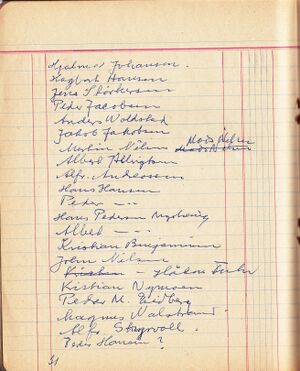 Hjalmar Johansen.
Hagbart Hansen
Jens Störkersen
Peder Jacobsen
Anders Woldsted
Jakob Jakobsen
Martin Nilsen Mads Nelsen
Albert Albrigtsen
Alfr. Andreassen
Hans Hansen
Peder — " —
Hans Pedersen Myrheim
Albert — " —
Kristian Benjaminsen
John Nilsen
Kristen — Håkon
Kristian Nymoen
Peder M. Eidberg
Magnus Valstrand
Alfr. Skogvoll.
Peder Hansen?